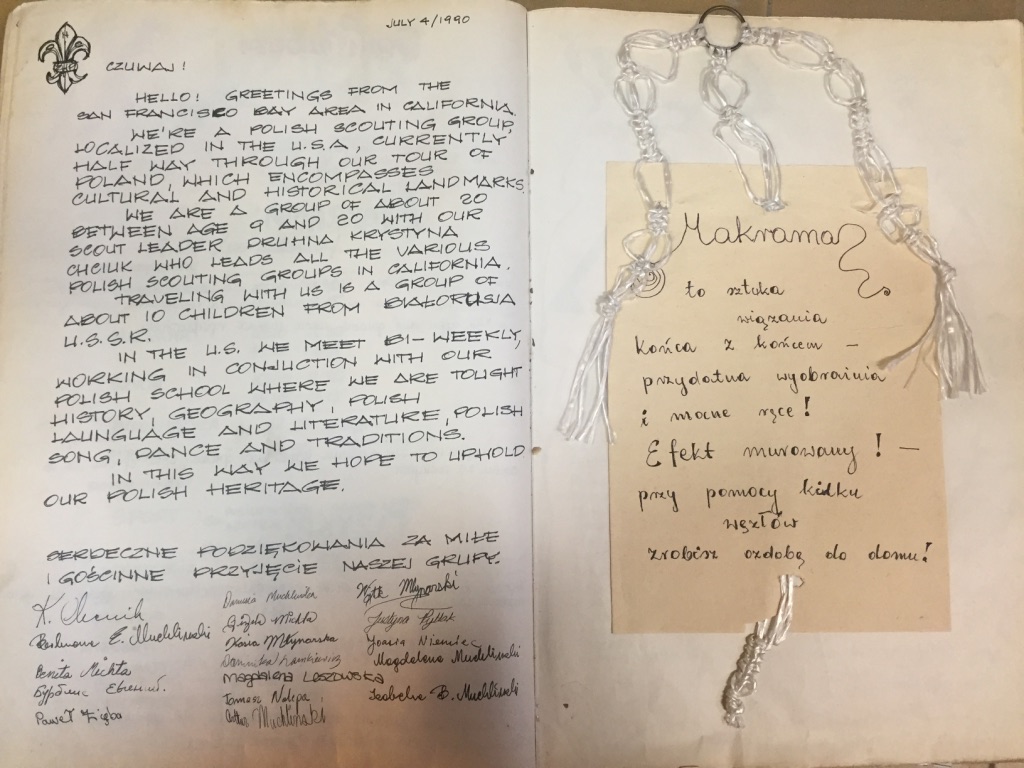 JULY 4/1990
CZUWAJ!
HELLO! GREETINGS FROM THE
SAN FRANCISCO BAY AREA IN CALIFORNIA.
WE'RE A POLISH SCOUTING GROUP,
LOCALIZED IN THE U.S.A, CURRENTLY
HALF WAY THROUGH OUR TOUR OF
POLAND, WHICH ENCOMPASSES
CULTURAL AND HISTORICAL LANDMARKS.
WE ARE A GROUP OF ABOUT 20
BETWEEN AGE 9 AND 20 WITH OUR
SCOUT LEADER DRUHNA KRYSTYNA
CHCIUK WHO LEADS ALL THE VARIOUS
POLISH SCOUTING GROUPS IN CALIFORNIA.
TRAVELING WITH US IS A GROUP OF
ABOUT 10 CHILDREN FROM BIAŁORUSIA
U.S.S.R.
IN THE U.S. WE MEET BI-WEEKLY,
WORKING IN CONJUCTION WITH OUR
POLISH SCHOOL WHERE WE ARE TOUGHT
HISTORY, GEOGRAPHY, POLISH
LAUNGUAGE AND LITERATURE, POLISH
SONG, DANCE AND TRADITIONS.
IN THIS WAY WE HOPE TO UPHOLD
OUR POLISH HERITAGE.
SERDECZNE PODZIĘKOWANIA ZA MIŁE
I GOŚCINNE PRZYJĘCIE NASZEJ GRUPY.
Młynarski
Justyna
E. Muchliński
Kasia Młynarska
Joasia Niemiec
Benita Michta
Magdalena Muchliński
Magdalena Leszowska
Tomasz Nalepa
Izabela B. Muchliński
Paweł Zięba
Muchliński
Makrama
to sztuka
wiązania
końca z końcem –
przydatna wyobraźnia
i mocne ręce!
Efekt murowany! –
przy pomocy kilku
węzłów
zrobisz ozdobę do domu!